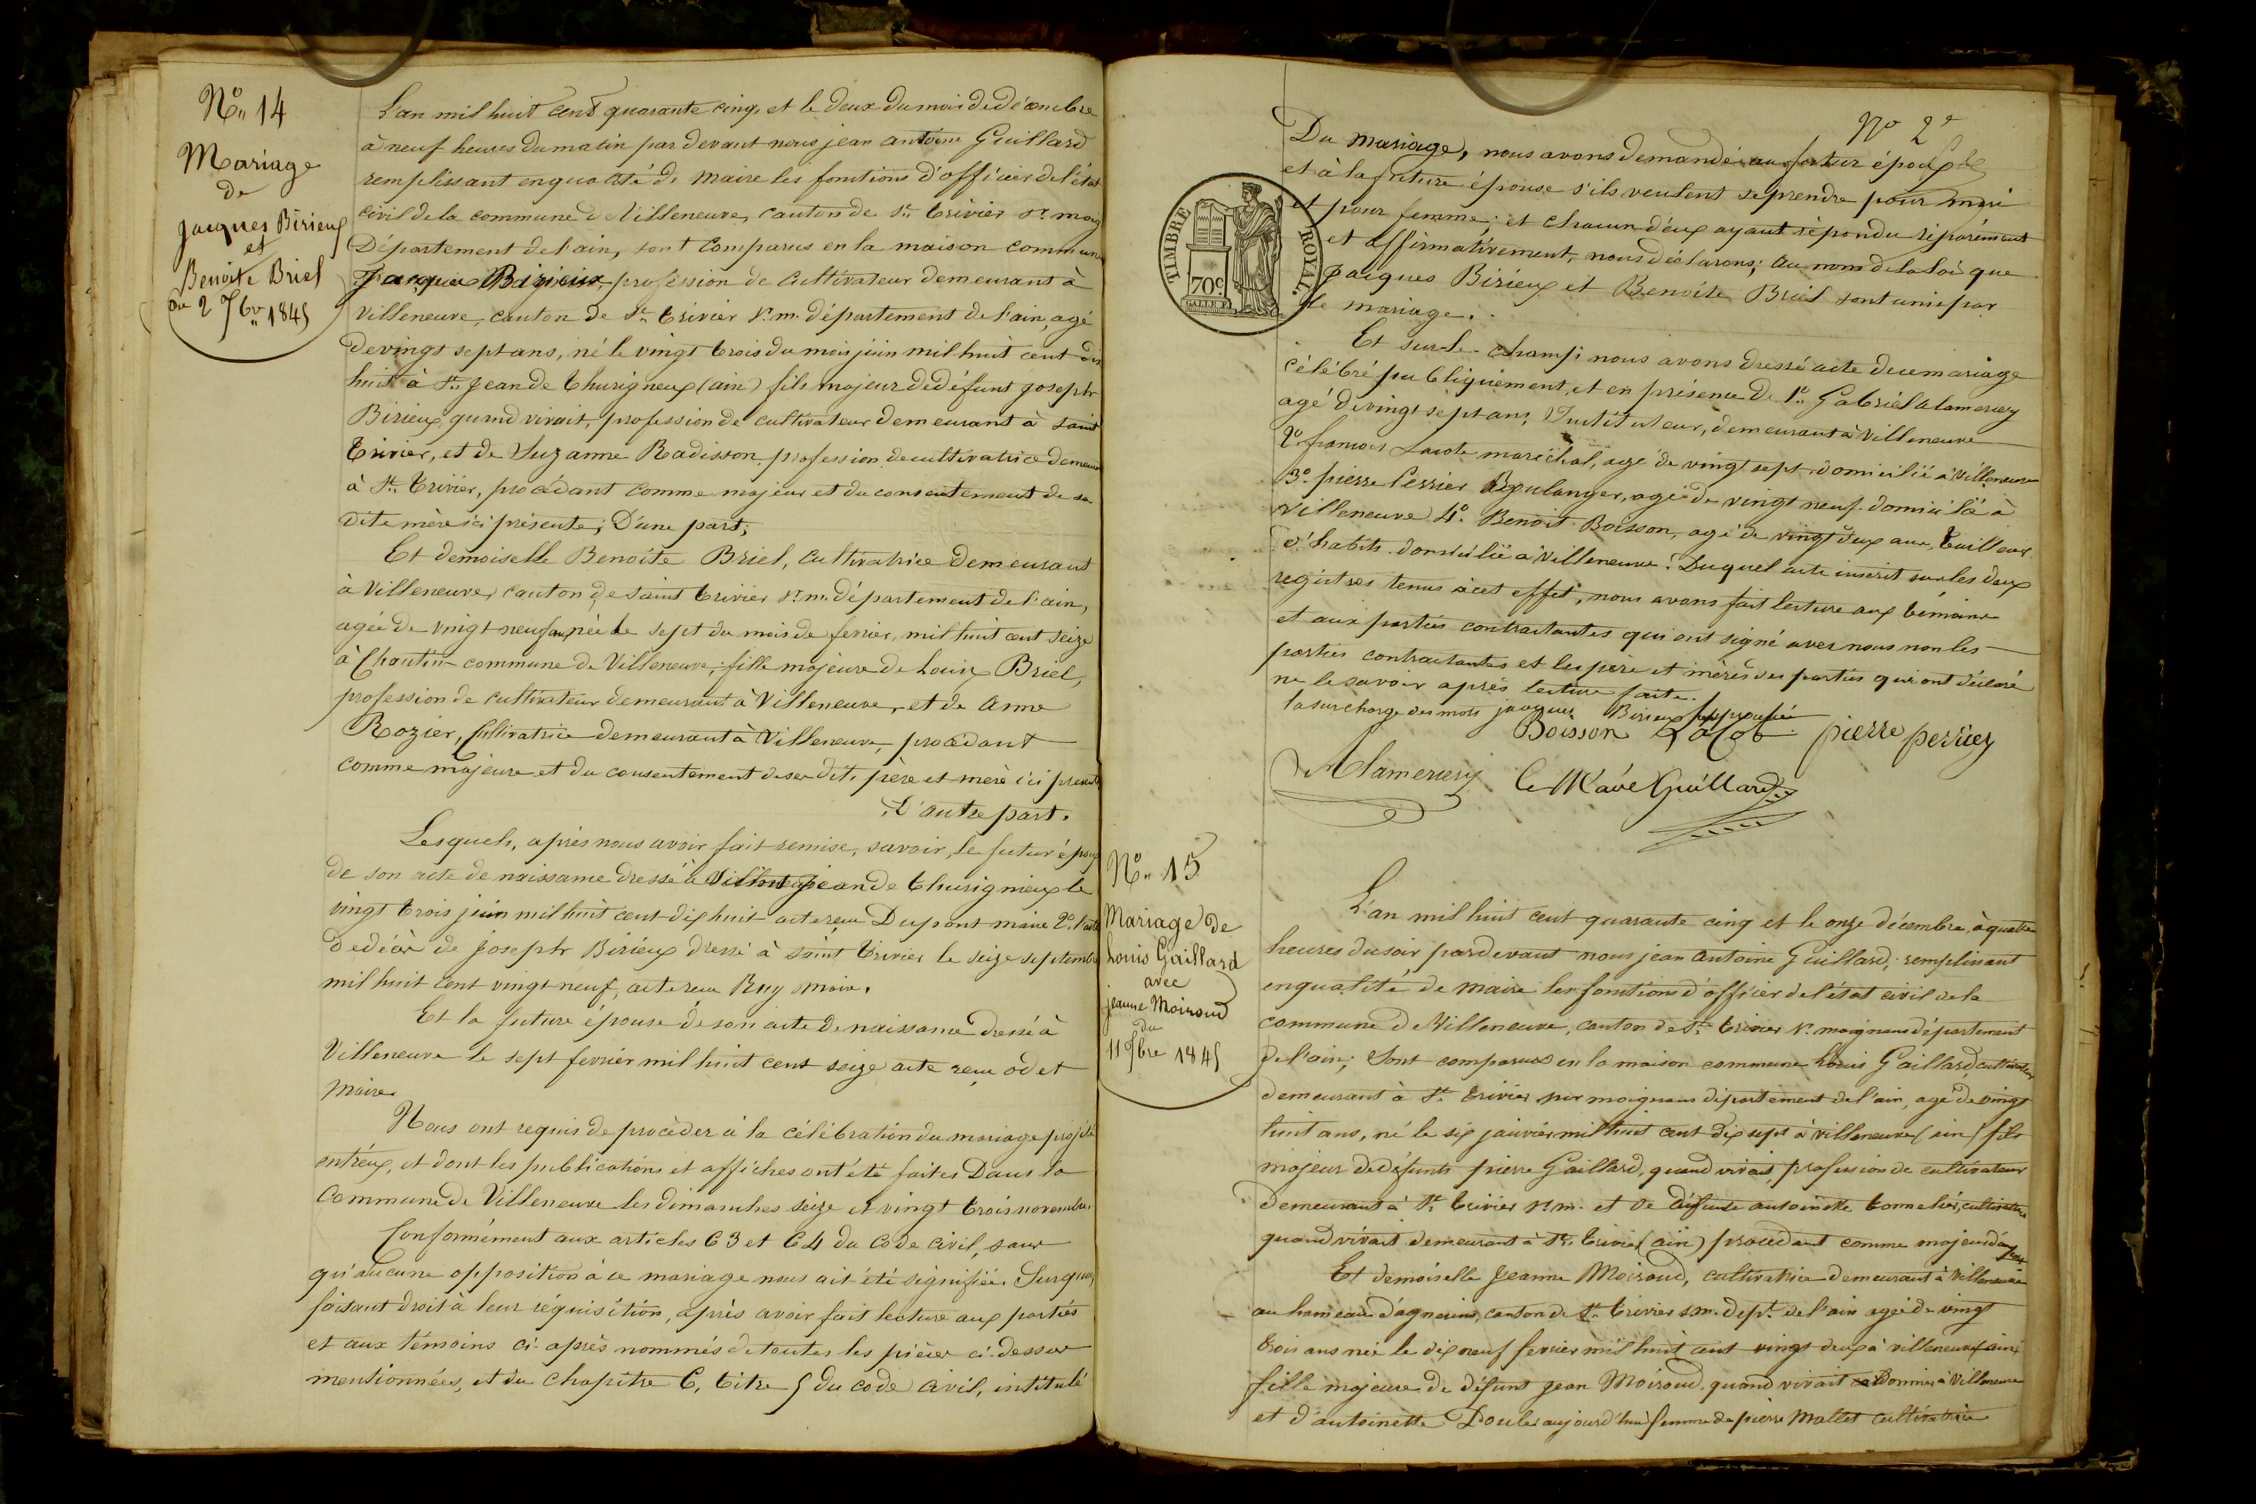 N° 14
Mariage
de
Jacques Birieux
et
Benoite Briel
du 2 Xbre 1845
L'an mil huit cent quarante cinq et le deux du mois de décembre
à neuf heures du matin par devant nous jean antoine Guillard
remplissant en qualité de maire les fonctions d'officier de l'état
civil de la commune de Villeneuve, canton de St. trivier sr. moig
Département de l'ain, sont comparus en la maison commune
Jacques Birieux, profession de cultivateur demeurant à
Villeneuve, canton de St. trivier s. m. département de l'ain, agé
de vingt sept ans, né le vingt trois du mois juin mil huit cent dix
huit à St. Jean de thurigneux (ain) fils majeur de défunt joseph
Birieux, quand vivait, profession de cultivateur demeurant à saint
trivier, et de Suzanne Radisson profession de cultivatrice demeur
à St. trivier, procédant comme majeur et du consentement de sa
dite mère ici présente; D'une part;
Et demoiselle Benoite Briel, cultivatrice demeurant
à Villeneuve, canton de saint trivier s. m. département de l'ain,
agée de vingt neuf ans née le sept du mois de fevrier, mil huit cent seize
à Choutin commune de Villeneuve; fille majeure de Louis Briel,
profession de cultivateur demeurant à Villeneuve, et de anne
Rozier, Cultivatrice demeurant à Villeneuve, procédant
comme majeure et du consentement de ses dits père et mère ici present
D'autre part.
Lesquels, après nous avoir fait remise, savoir, le futur époux
de son acte de naissance dressé à jean de thurignieux le
vingt trois juin mil huit cent dix huit acte reçu Dupont maire 2° l'acte
de décès de joseph Birieux dressé à saint trivier le seize septembre
mil huit cent vingt neuf, acte reçu Ruy maire.
Et la future épouse de son acte de naissance dressé à
Villeneuve le sept fevrier mil huit cent seize acte reçu odet
maire
Nous ont requis de procèder à la célébration du mariage projeté
entr'eux, et dont les publications et affiches ont été faites Dans la
Commune de Villeneuve les dimanches seize et vingt trois novembre
Conformément aux articles 63 et 64 du Code civil, sans
qu'aucune opposition à ce mariage nous ait été signifiée. Sur quoi,
faisant droit à leur réquisition, après avoir fait lecture aux parties
et aux témoins ci-après nommés de toutes les pièces ci-dessus
mentionnées, et du chapitre 6, titre 5 du code civil, intitulé
N° 2e
Du mariage, nous avons demandé au futur époux
et à la future épouse s'ils veulent se prendre pour mari
et pour femme; et chacun d'eux ayant répondu séparément
et affirmativement, nous déclarons, au nom de la loi que
Jacques Birieux et Benoite Briel sont unis par
le mariage.
TIMBRE ROYAL.
70c.
Et sur-le-champ; nous avons dressé acte de ce mariage
célébré publiquement, et en présence de 1° Gabriel alamercery
agé de vingt sept ans, Instituteur, demeurant à Villeneuve
2° françois maréchal, agé de vingt sept domicilié à Villeneuve
3° pierre Perrier Boulanger, agé de vingt neuf domicilié à
Villeneuve 4° Benoit Boisson, agé de vingt deux ans, tailleur
d'habits domicilié à Villeneuve. Duquel acte inscrit sur les deux
registres tenus à cet effet, nous avons fait lecture aux témoins
et aux parties contractantes qui ont signé avec nous non les
parties contractantes et les père et mères des parties qui ont déclaré
ne le savoir après lecture faite.
la surcharge des mots jacques Birieux approuvée
Boisson pierre perrier
Alamercery le Maire Guillard
N° 15
Mariage de
Louis Gaillard
avec
jeanne Moiroud
du
11 Xbre 1845
L'an mil huit cent quarante cinq et le onze décembre, à quatre
heures du soir pardevant nous jean antoine Guillard, remplissant
en qualité de maire les fonctions d'officier de l'état civil de la
commune de Villeneuve, canton de St. trivier s. moignans département
de l'ain; sont comparus en la maison commune Louis Gaillard cultivateur
demeurant à St. trivier sur moignans département de l'ain, agé de vingt
huit ans, né le six janvier mil huit cent dix sept à villeneuve (ain) fils
majeur de défunts pierre Gaillard, quand vivait, profession de cultivateur
demeurant à St. trivier s. m. et de défunte antoinette tonnelier, cultivatrice
quand vivait demeurant à St. trivier (ain) procédant comme majeur
Et demoiselle Jeanne Moiroud, cultivatrice demeurant à Villeneuve
au hameau d'agnerins, canton de St. trivier s. m. dept. de l'ain agée de vingt
trois ans née le dix neuf fevrier mil huit cent vingt deux à villeneuve (ain)
fille majeure de défunt jean Moiroud, quand vivait à Villeneuve
et d'antoinette aujourd'hui femme de pierre Mallet cultivatrice